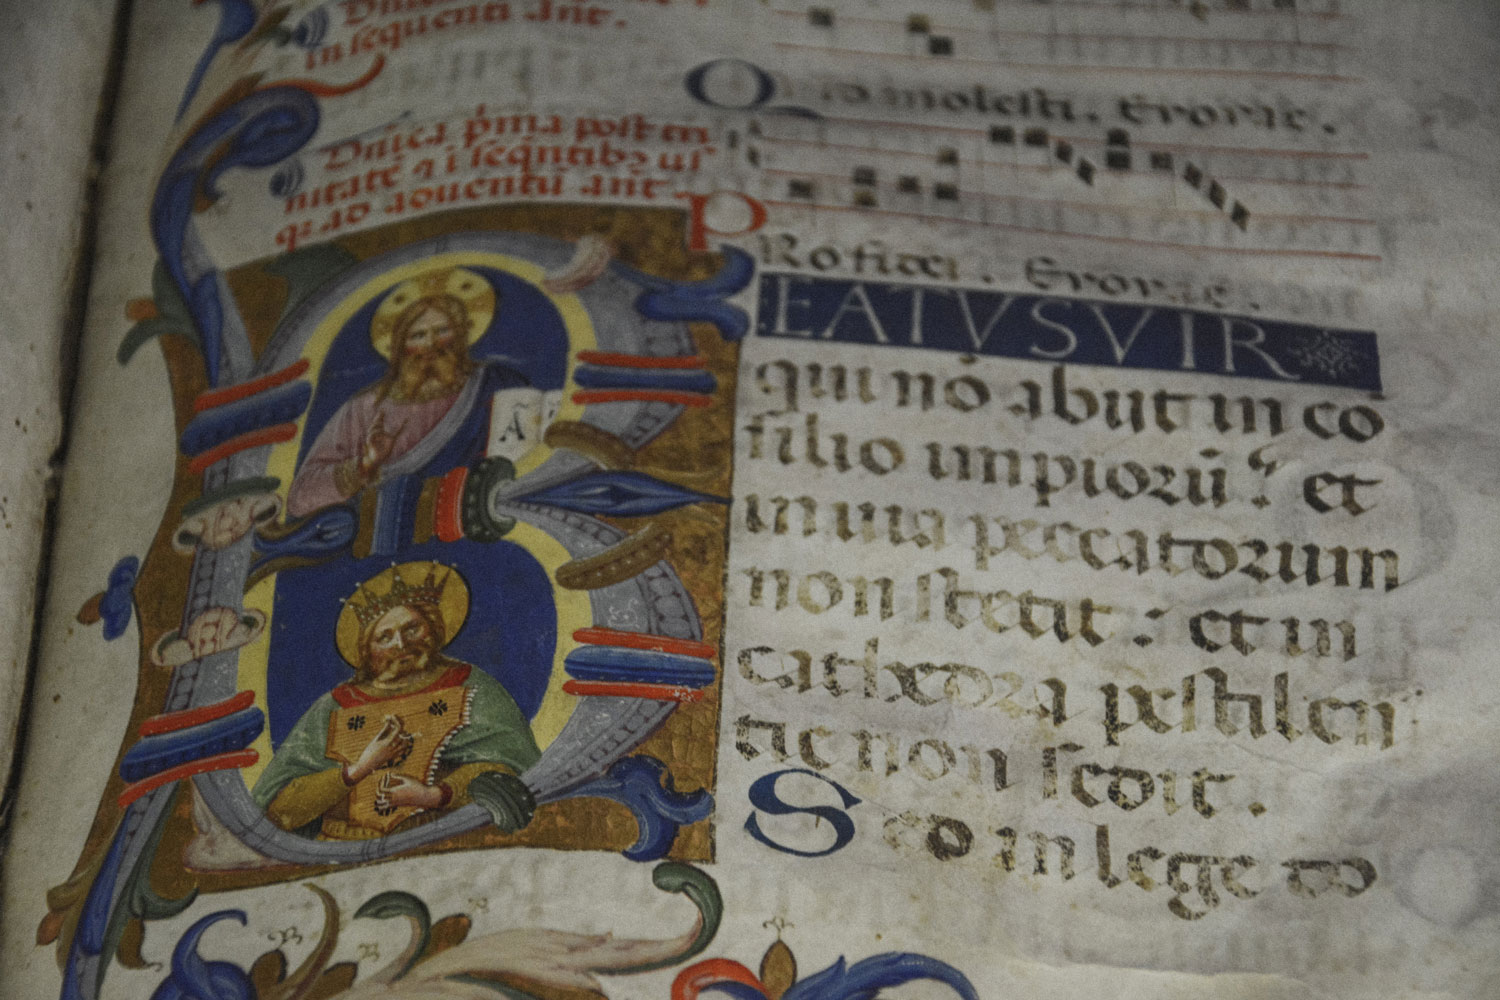 in sequenti ant.
Dn̄ica p̄ma post tri
nitatē ⁊ i seqn̄tibꝫ usꝫ
qꝫ ad aduentū ant.
Q̲ molesti. Evovae.
P Rofiτ. Evovae.
BEATVSVIR
qui nō abijt in cō
silio impiorū: et
in uia peccatorum
non stetit: et in
cathedra pestilen
tie non sedit.
Sed in lege do
A